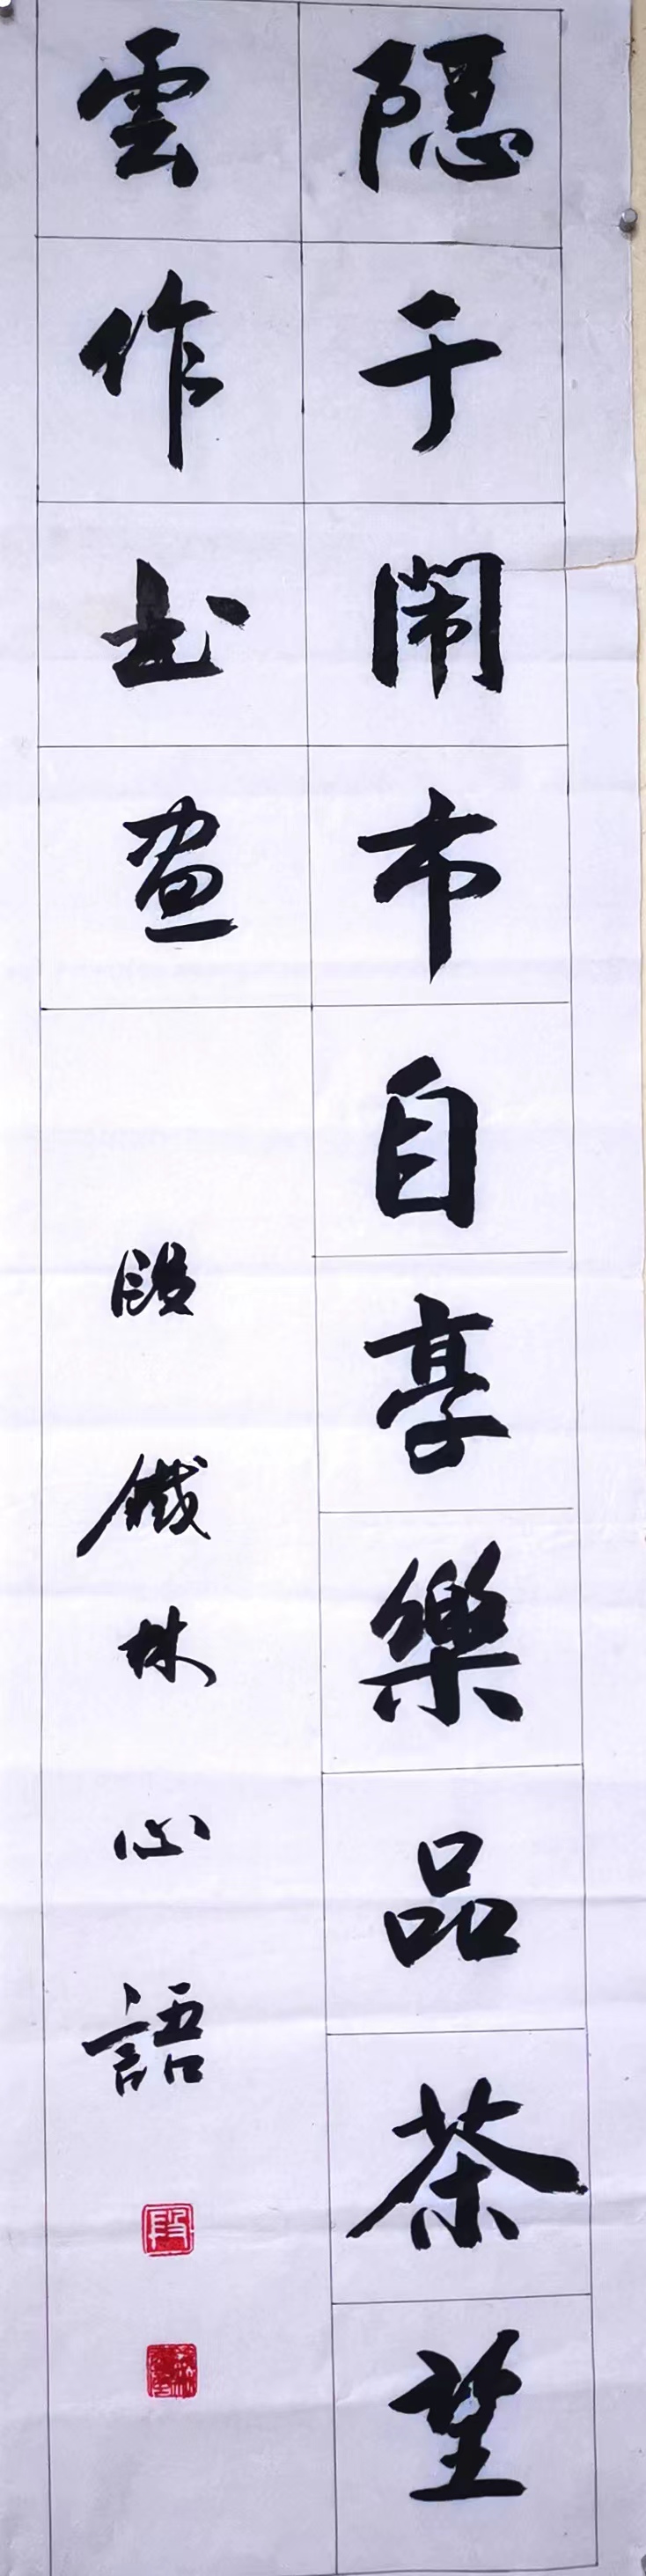 隱于鬧市自享樂品茶望
雲作出畫
段鐵林心語
段